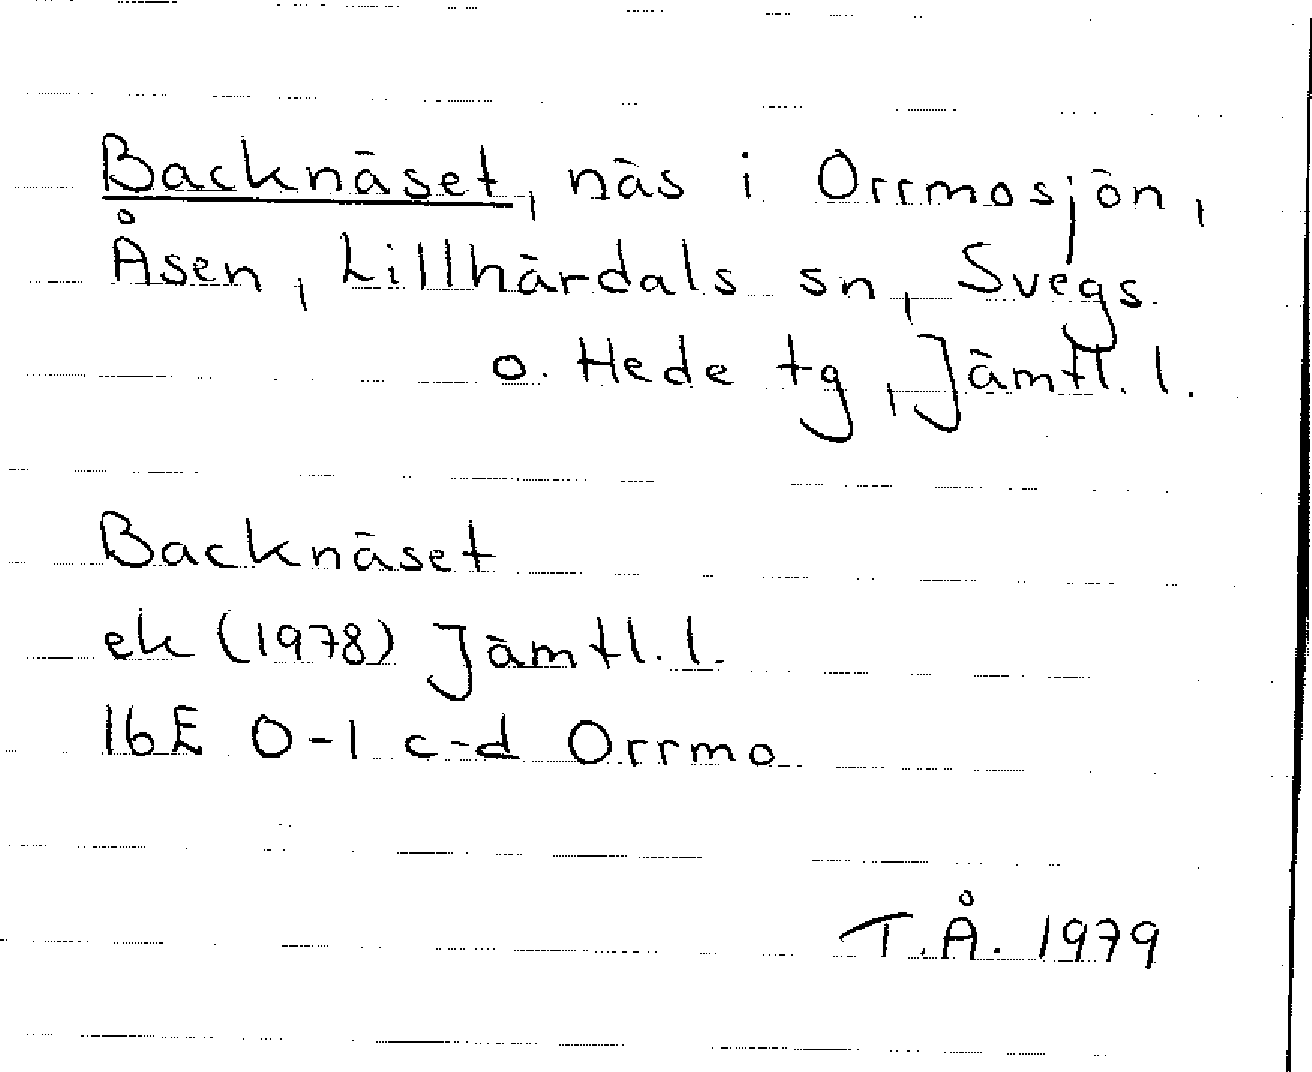 Backnäset, näs i Orrmosjön,
Åsen, Lillhärdals sn, Svegs
o. Hede tg, Jämtl. l.
Backnäset
ek (1978) Jämtl. l.
16E 0-1 c-d Orrmo
T.Å. 1979